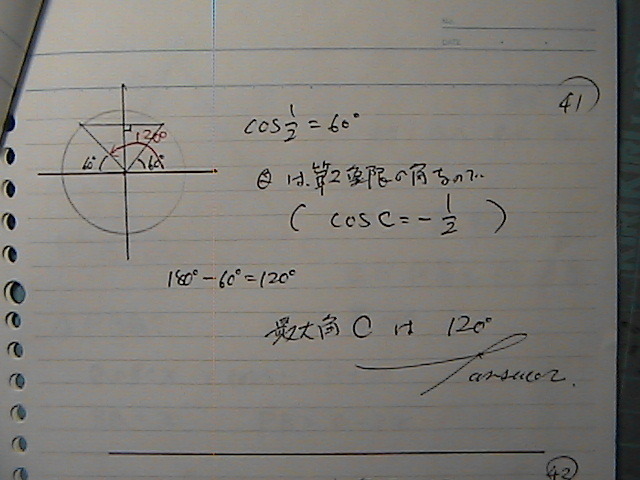 NO.
DATE
41
cos 1/2 = 60°
120°
60° 60°
θは第2象限の角なので
( cos C = - 1/2 )
180° - 60° = 120°
最大角 C は 120°
answer.
42